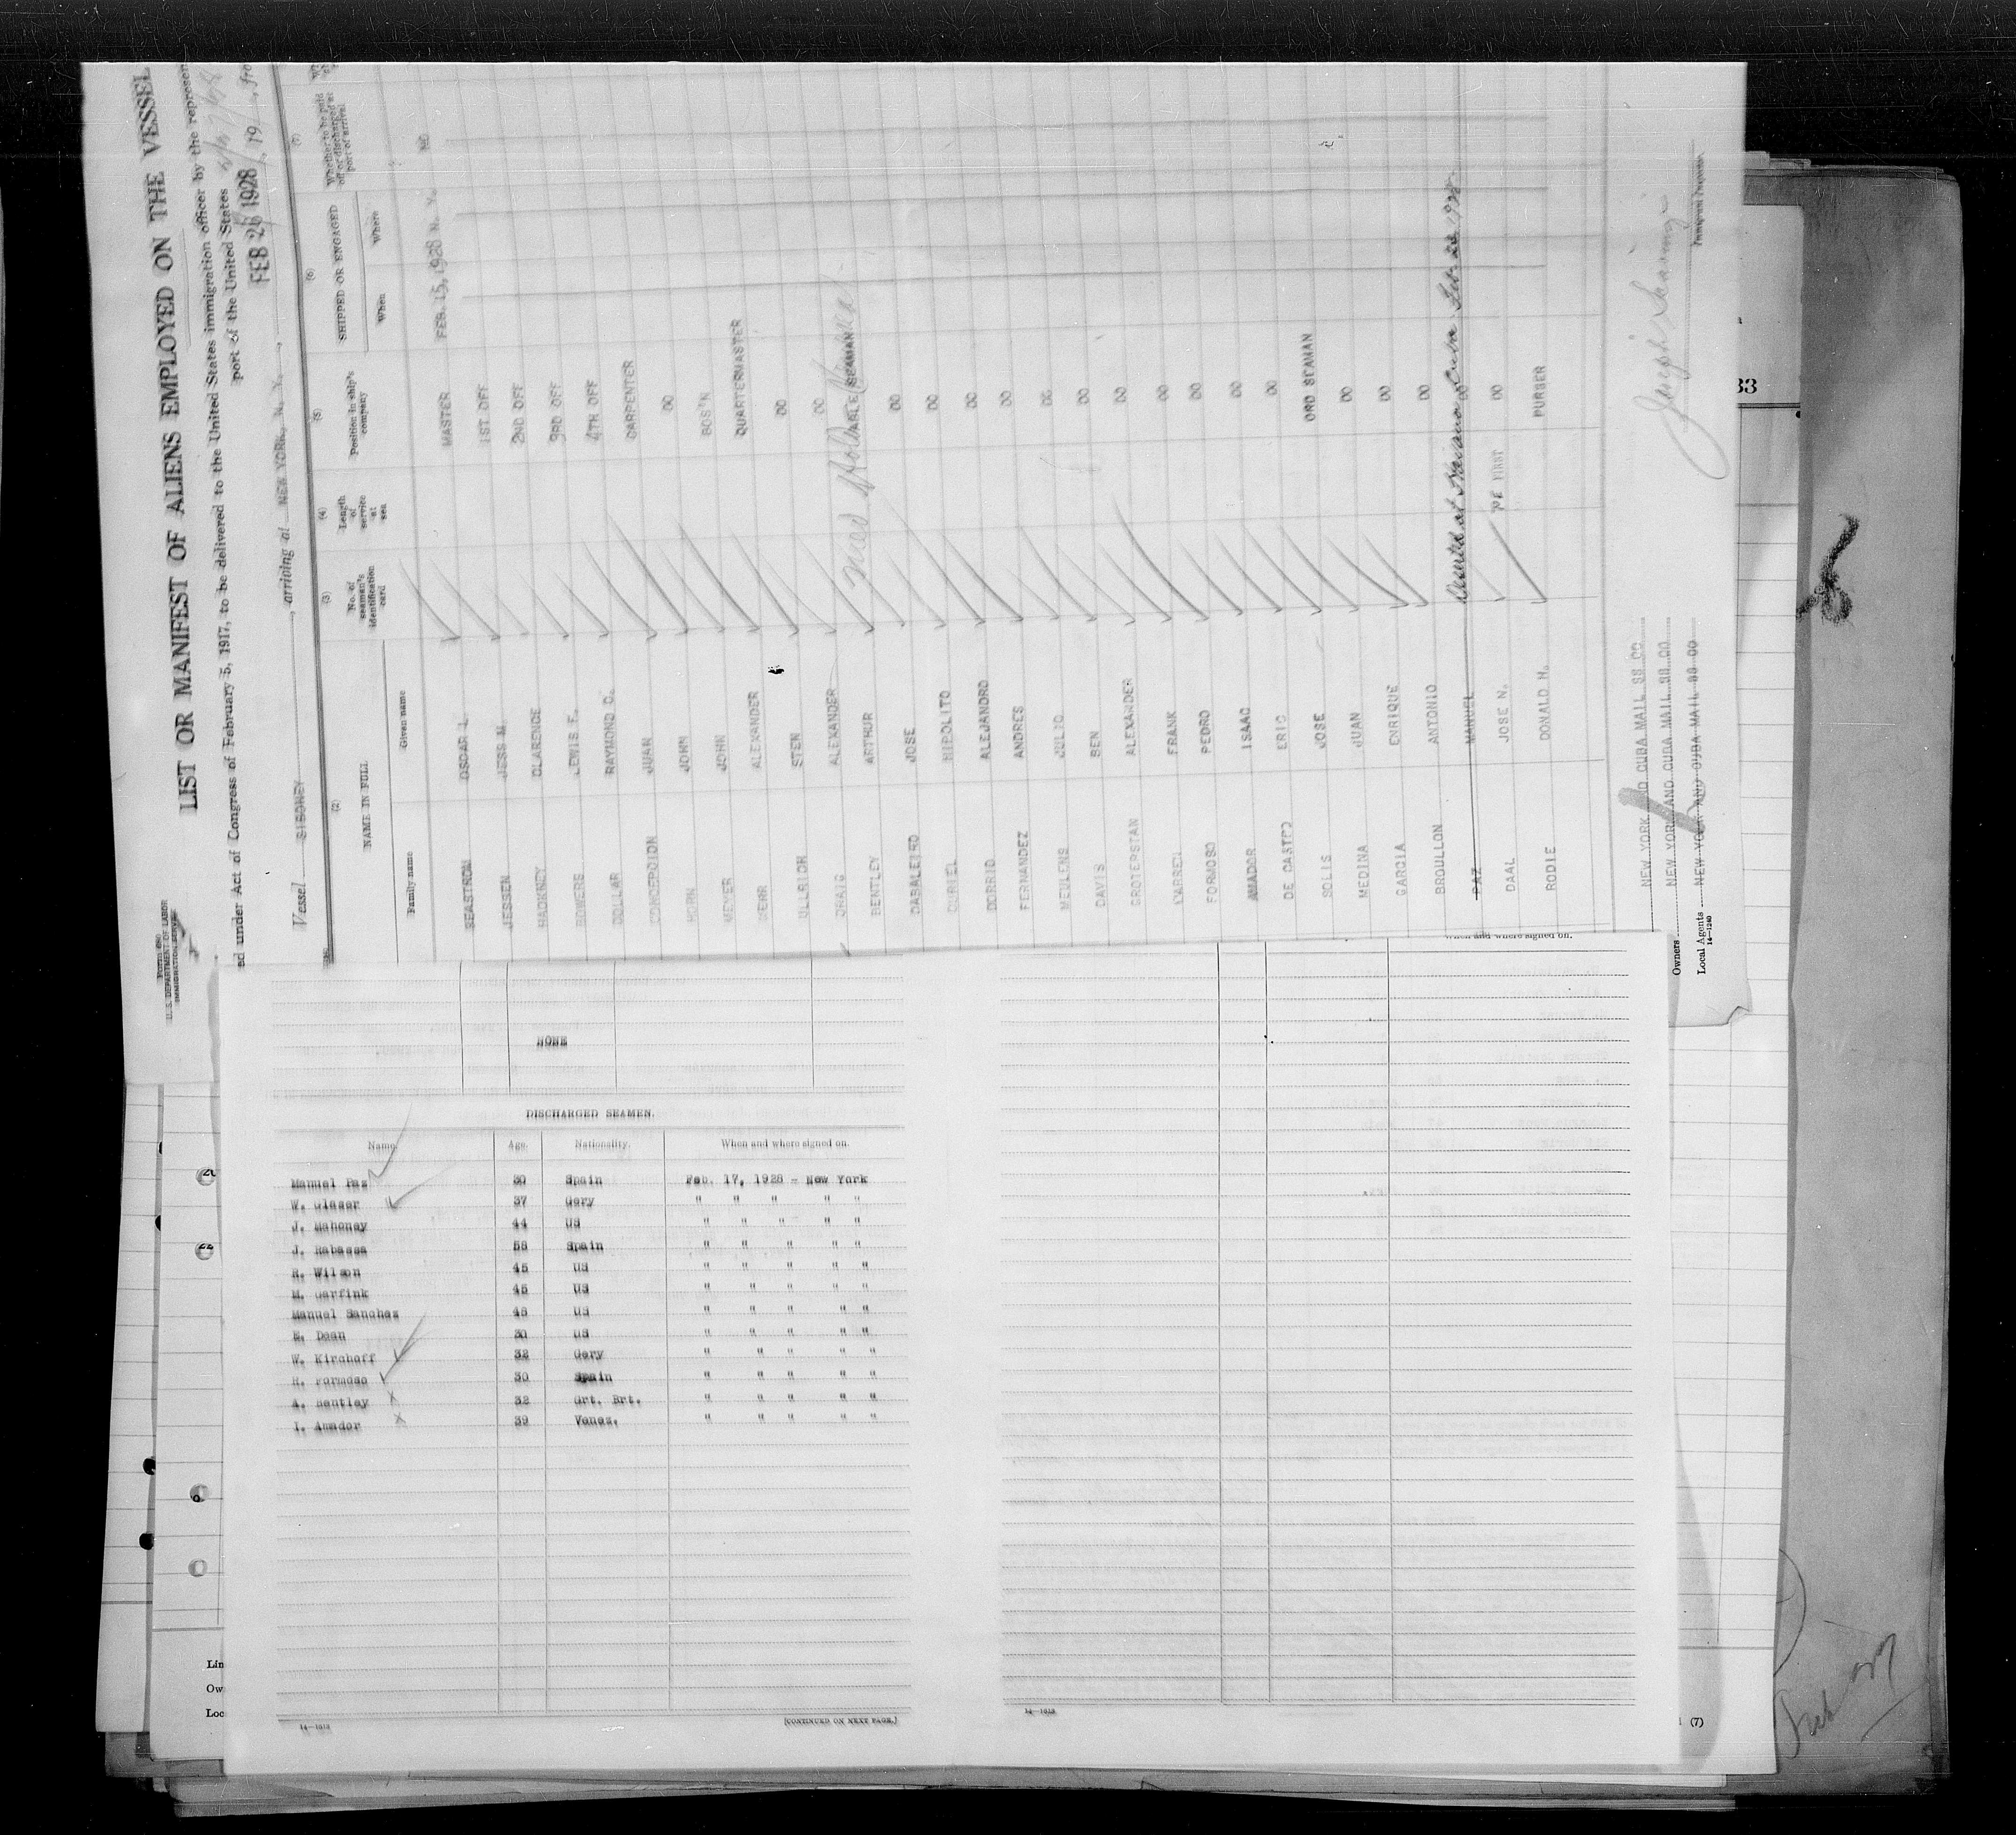 Form 680
U. S. DEPARTMENT OF LABOR
IMMIGRATION SERVICE
LIST OR MANIFEST OF ALIENS EMPLOYED ON THE VESSEL
ed under Act of Congress of February 5, 1917, to be delivered to the United States immigration officer by the represen
port of the United States
Vessel SIBONEY, arriving at NEW YORK, N. Y., FEB 26 1928, 19 , fro
(2) (3) (4) (5) (6) (7)
NAME IN FULL No. of seaman's identification card Length of service at sea Position in ship's company SHIPPED OR ENGAGED Whether to be paid off or discharged at port of arrival
Family name Given name When Where
SEASTROM OSCAR L. MASTER FEB. 15, 1928 N. Y. NO
JESSEN JESS M. 1ST OFF
HACKNEY CLARENCE 2ND OFF
BOWERS LEWIS F. 3RD OFF
DOLLAR RAYMOND C. 4TH OFF
CONCEPCION JUAN CARPENTER
HORN JOHN DO
MEYER JOHN BOS'N
KERR ALEXANDER QUARTERMASTER
ULLRICH STEN DO
CRAIG ALEXANDER DO
BENTLEY ARTHUR ABLE SEAMAN
CABALEIRO JOSE DO
CURIEL HIPOLITO DO
DORRIO ALEJANDRO DO
FERNANDEZ ANDRES DO
MEULENS JULIO DO
DAVIS BEN DO
CROTERSTAN ALEXANDER DO
FRANK DO
FORMOSO PEDRO DO
AMADOR ISAAC DO
DE CASTRO ERIC DO
SOLIS JOSE ORD SEAMAN
MEDINA JUAN DO
GARCIA ENRIQUE DO
BROULLON ANTONIO DO
PAZ MANUEL Deserted at Havana Cuba Feb 22 1928. DO
DAAL JOSE N. DO
RODIE DONALD H. PURSER
NEW YORK AND CUBA MAIL SS CO
Owners NEW YORK AND CUBA MAIL SS CO
Local Agents NEW YORK AND CUBA MAIL SS CO
14—1240
Immigrant Inspector.
33
When and where signed on.
NONE
DISCHARGED SEAMEN.
Name. Age. Nationality. When and where signed on.
Manuel Paz 30 Spain Feb. 17, 1928 - New York
W. Glaser 37 Gery " " " " "
J. Mahoney 44 US " " " " "
J. Rabassa 58 Spain " " " " "
R. Wilson 45 US " " " " "
M. Garfink 45 US " " " " "
Manuel Sanchez 48 US " " " " "
E. Dean 30 US " " " " "
W. Kirchoff 32 Gery " " " " "
H. Formoso 30 Spain " " " " "
A. Bentley 32 Grt. Brt. " " " " "
I. Amador 39 Venez. " " " " "
Lin
Ow
Loc
14—1513
[CONTINUED ON NEXT PAGE.]
14—1513
(7)